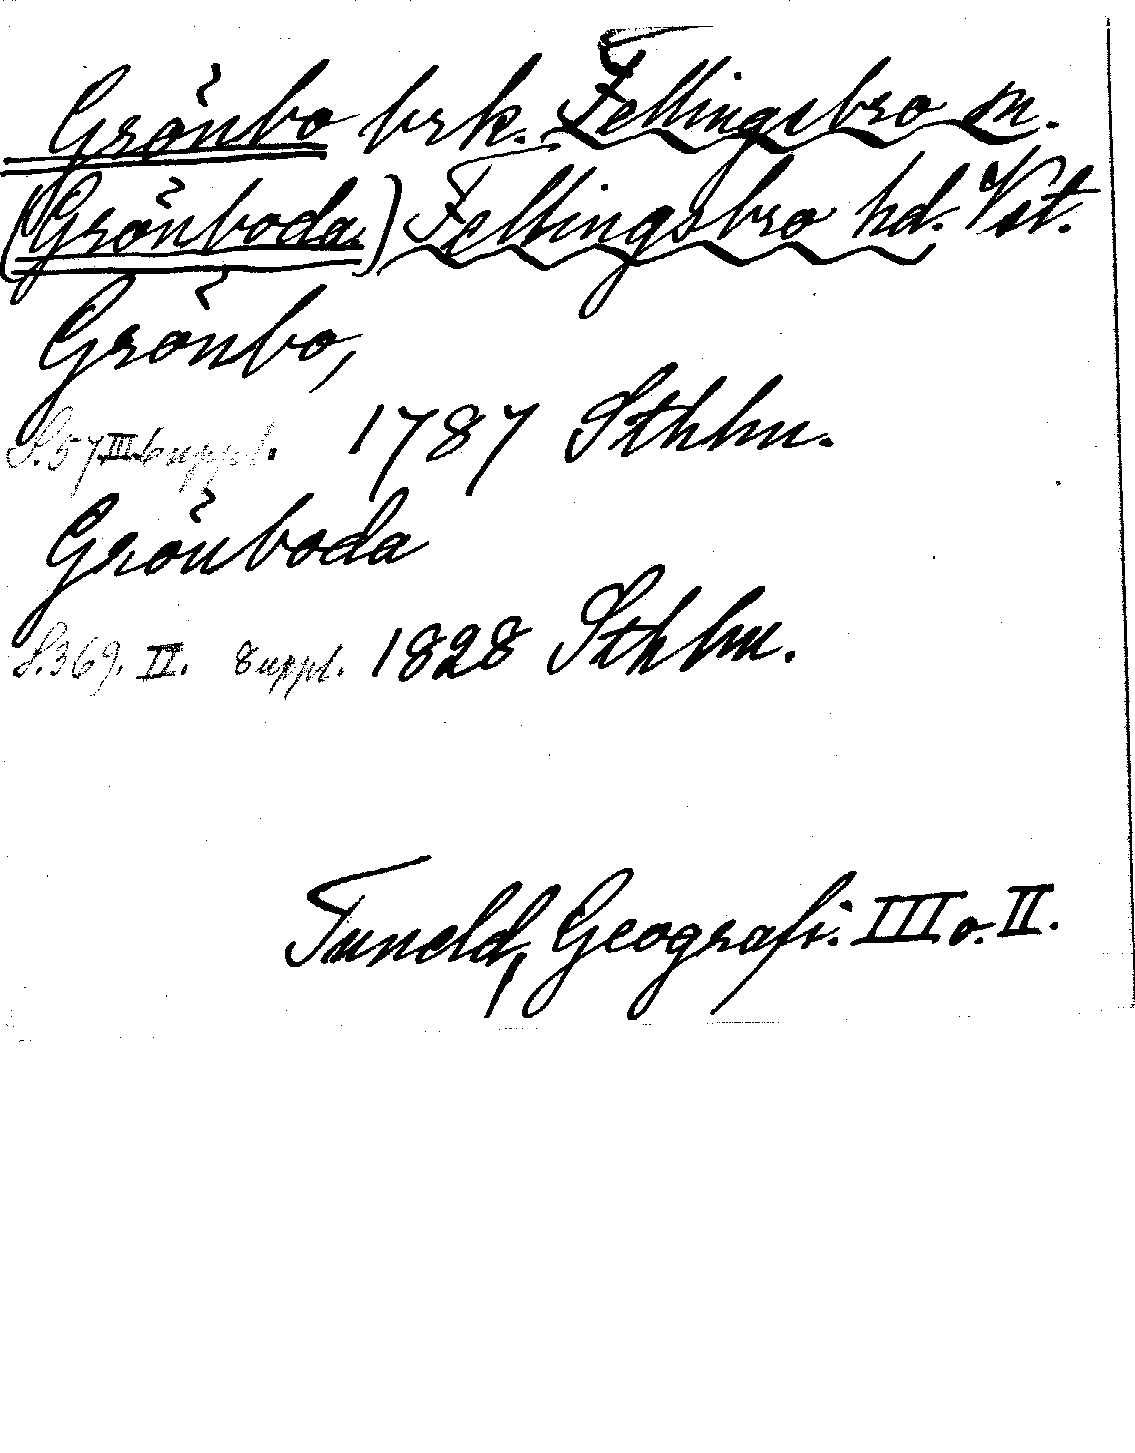 Grönbo brk. Fellingsbro sn.
(Grönboda) Fellingsbro hd. Vst.
Grönbo,
S. 57 III suppl. 1787 Sthlm.
Grönboda
S. 369. II. Suppl. 1828 Sthlm.
Tuneld, Geografi. III o. II.